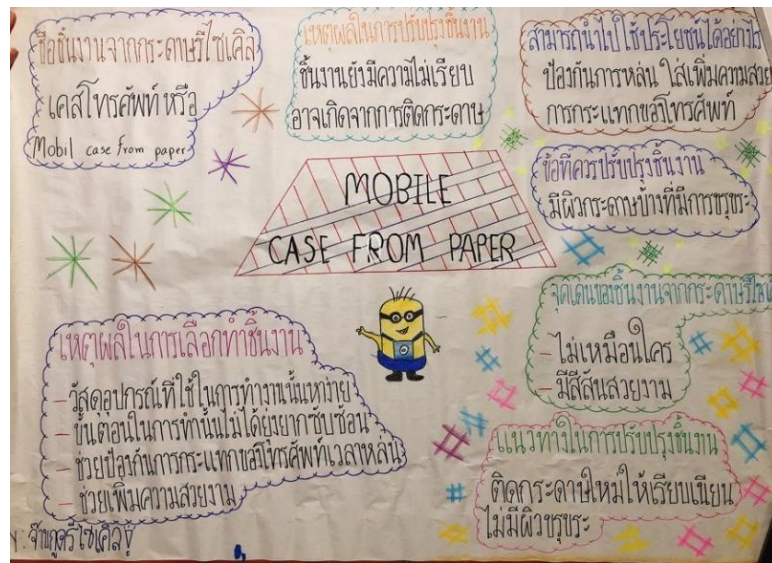 ชื่อชิ้นงานจากกระดาษรีไซเคิล
เคสโทรศัพท์ หรือ
Mobil case from paper
เหตุผลในการปรับปรุงชิ้นงาน
ชิ้นงานยังมีความไม่เรียบ
อาจเกิดจากการติดกระดาษ
สามารถนำไปใช้ประโยชน์ได้อย่างไร
ป้องกันการหล่น ใส่เพิ่มความสวย
การกระแทกของโทรศัพท์
MOBILE
CASE FROM PAPER
ข้อที่ควรปรับปรุงชิ้นงาน
มีผิวกระดาษบ้างที่มีการขรุขระ
จุดเด่นของชิ้นงานจากกระดาษรีไซเ
- ไม่เหมือนใคร
- มีสีสันสวยงาม
เหตุผลในการเลือกทำชิ้นงาน
- วัสดุอุปกรณ์ที่ใช้ในการทำงานนั้นหาง่าย
- ขั้นตอนในการทำนั้นไม่ได้ยุ่งยากซับซ้อน
- ช่วยป้องกันการกระแทกของโทรศัพท์เวลาหล่น
- ช่วยเพิ่มความสวยงาม
แนวทางในการปรับปรุงชิ้นงาน
ติดกระดาษใหม่ให้เรียบเนียน
ไม่มีผิวขรุขระ